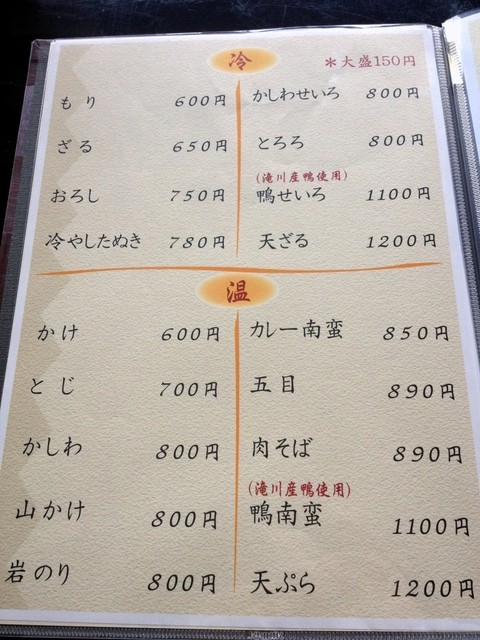 冷
＊大盛150円
もり 600円
ざる 650円
おろし 750円
冷やしたぬき 780円
かしわせいろ 800円
とろろ 800円
(滝川産鴨使用)
鴨せいろ 1100円
天ざる 1200円
温
かけ 600円
とじ 700円
かしわ 800円
山かけ 800円
岩のり 800円
カレー南蛮 850円
五目 890円
肉そば 890円
(滝川産鴨使用)
鴨南蛮 1100円
天ぷら 1200円